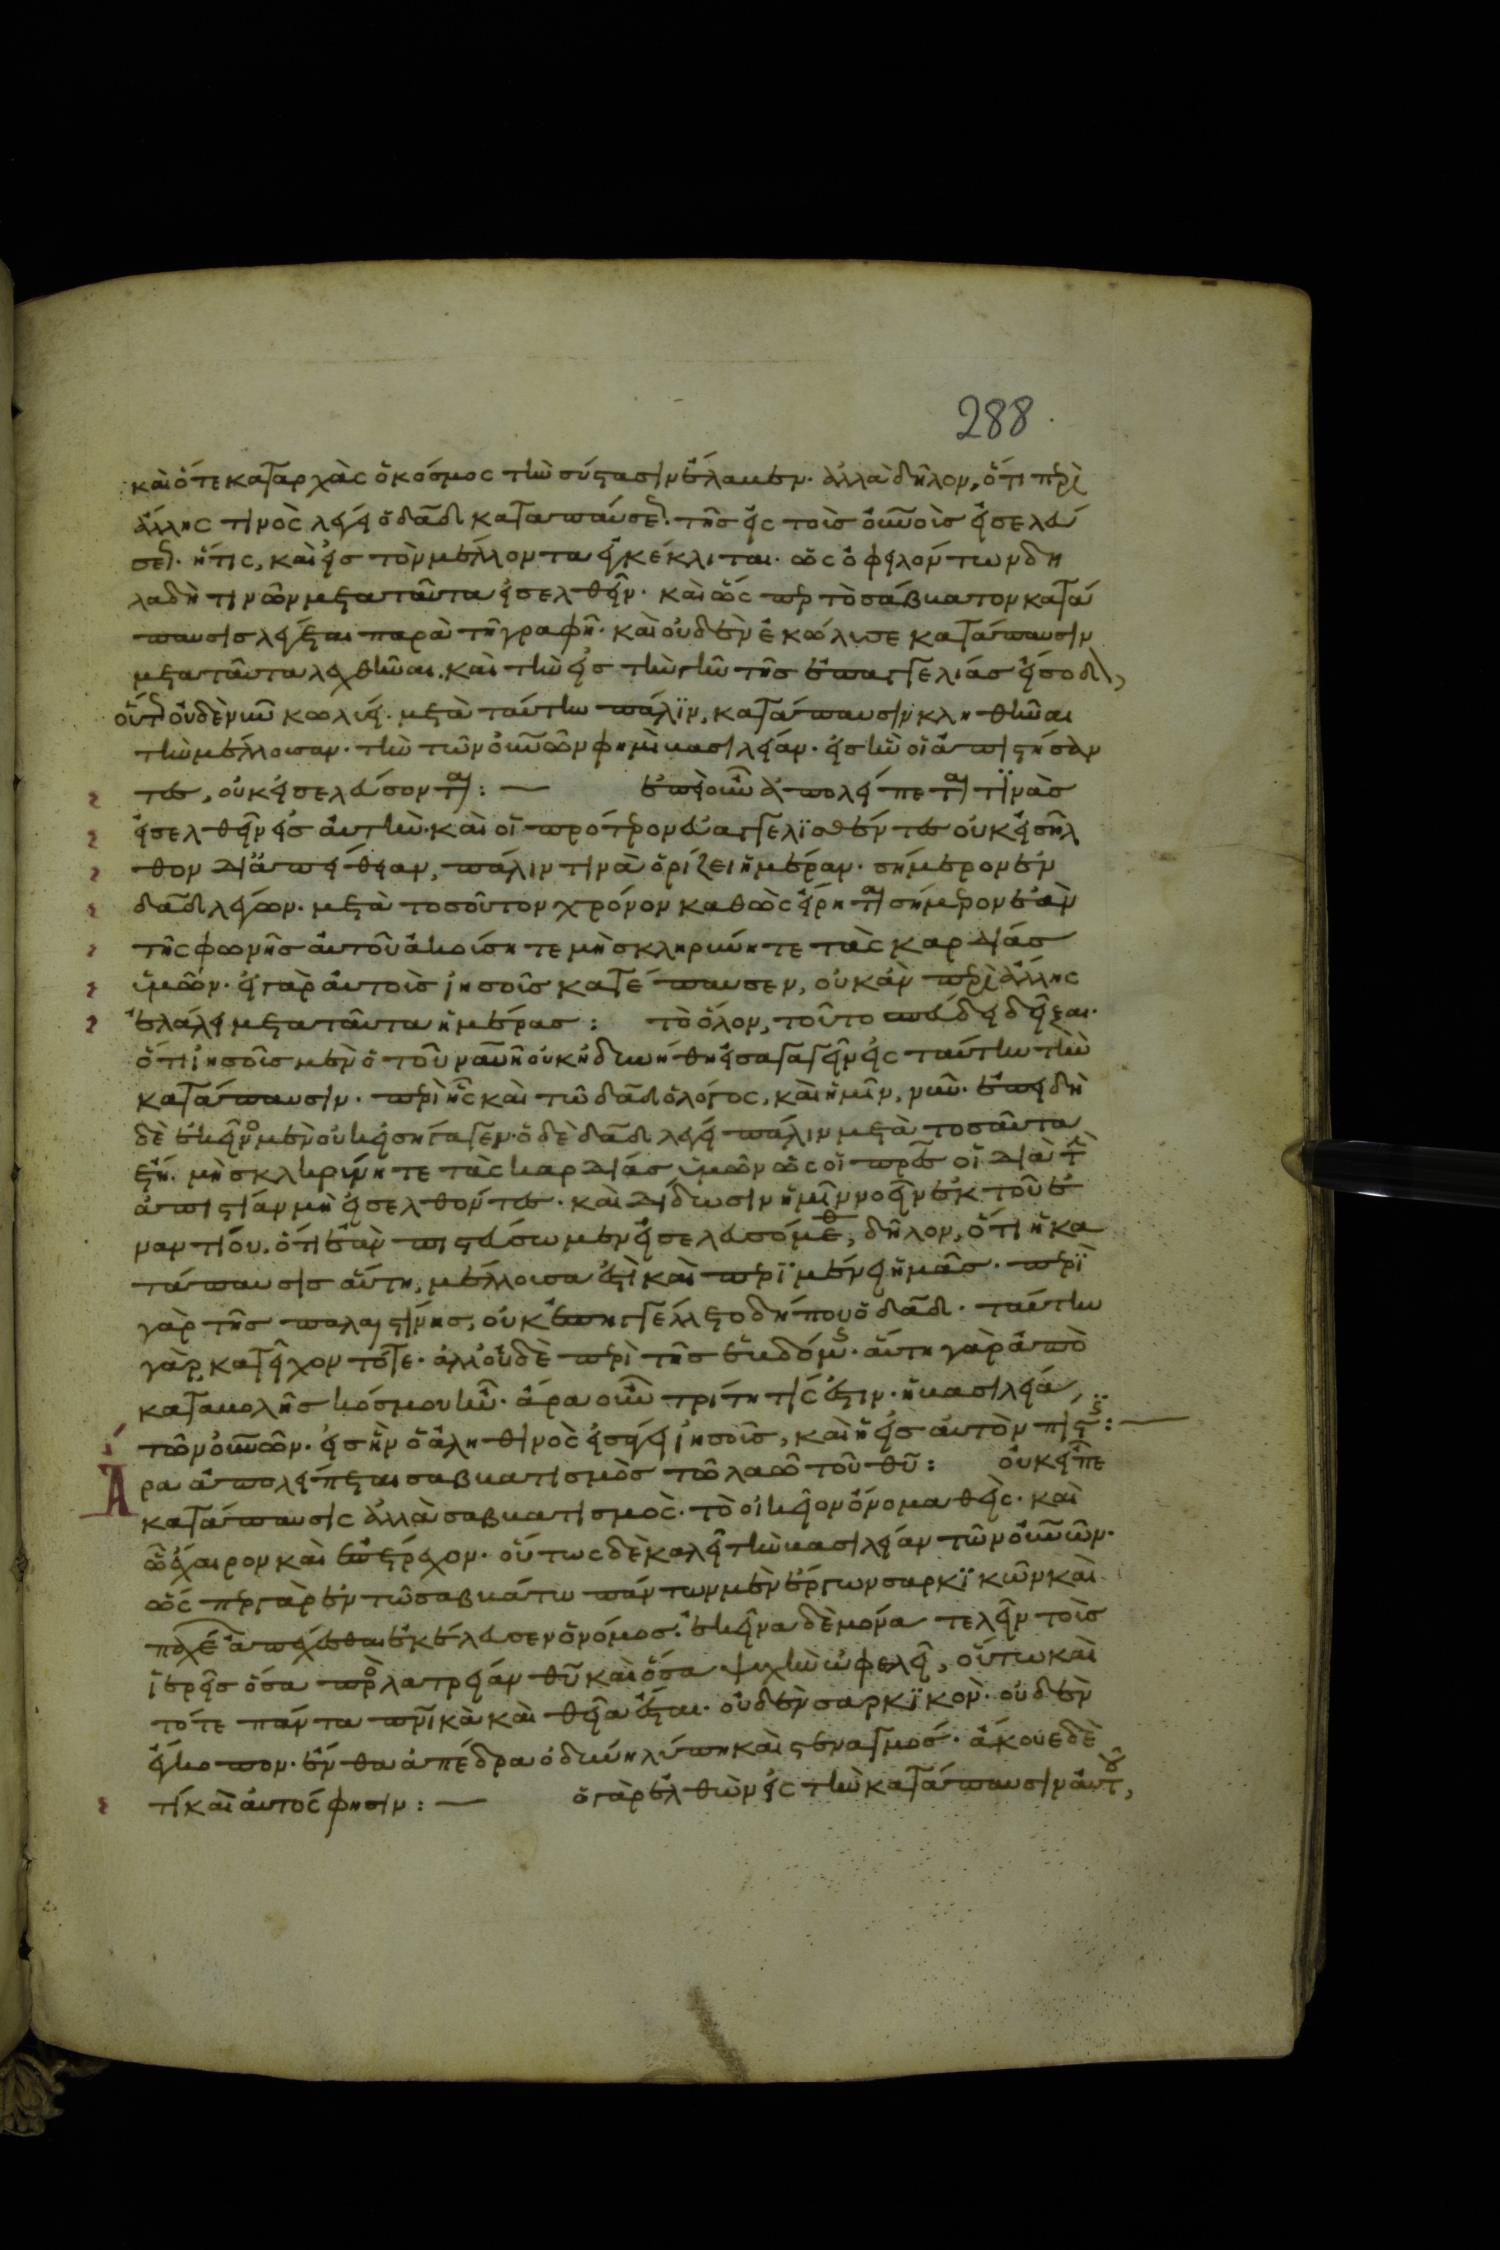 288.
καὶ ὅτε καταρχὰς ὁ κόσμος τὴν σύστασιν ἔλαβεν. ἀλλὰ δῆλον, ὅτι περὶ
ἄλλης τινὸς λέγει ὁ δαδ καταπαύσεως. τῆς εἰς τοὺς οὐνοὺς εἰσελεύ
σεως. ἥτις, καὶ εἰς τὸν μέλλοντα κέκλιται. ὡς ὀφειλόντων δη
λαδή τινων μετὰ ταῦτα εἰσελθεῖν. καὶ ὥσπερ τὸ σάββατον κατά
παυσις λέγεται παρὰ τῇ γραφῇ. καὶ οὐδὲν ἐκώλυσε κατάπαυσιν
μετὰ ταῦτα λεχθῆναι. καὶ τὴν εἰς τὴν γῆν τῆς ἐπαγγελίας εἴσοδον,
οὕτως οὐδὲ νῦν κωλύει. μετὰ ταύτην πάλιν, κατάπαυσιν κληθῆναι
τὴν μέλλουσαν. τὴν τῶν οὐνῶν φημὶ βασιλείαν. εἰς ἣν οἱ ἀπιστήσαν
τες, οὐκ εἰσελεύσονται: — ἐπεὶ οὖν ἀπολείπεται τινὰς
εἰσελθεῖν εἰς αὐτὴν. καὶ οἱ πρότερον εὐαγγελισθέντες οὐκ εἰσῆλ
θον δι' ἀπείθειαν, πάλιν τινὰ ὁρίζει ἡμέραν. σήμερον ἐν
δαδ λέγων. μετὰ τοσοῦτον χρόνον καθὼς εἴρηται σήμερον ἐὰν
τῆς φωνῆς αὐτοῦ ἀκούσητε μὴ σκληρύνητε τὰς καρδίας
ὑμῶν. εἰ γὰρ αὐτοὺς ἰησοῦς κατέπαυσεν, οὐκ ἂν περὶ ἄλλης
ἐλάλει μετὰ ταῦτα ἡμέρας: τὸ ὅλον, τοῦτο δέδεικται.
ὅτι ἰησοῦς μὲν ὁ τοῦ ναυῆ οὐκ ἠδυνήθη εἰσαγαγεῖν εἰς ταύτην τὴν
κατάπαυσιν. περὶ ἧς καὶ τῷ δαδ ὁ λόγος, καὶ ἡμῖν, νῦν. ἐπειδὴ
δὲ ἐκεῖνος μὲν οὐκ εἰσήγαγεν. ὁ δὲ δαδ λέγει πάλιν μετὰ τοσαῦτα
ἔτη. μὴ σκληρύνητε τὰς καρδίας ὑμῶν ὡς οἱ πρες οἱ διὰ τὴν
ἀπιστίαν μὴ εἰσελθόντες. καὶ δίδωσιν ἡμῖν νοεῖν ἐκ τοῦ ἐ
ναντίου. ὅτι ἐὰν πιστεύσωμεν εἰσελευσόμεθα, δῆλον, ὅτι ἡ κα
τάπαυσις αὕτη, μέλλουσα ἐστὶ καὶ περιμένει ἡμᾶς. περὶ
γὰρ τῆς παλαιστίνης, οὐκ ἐπηγγέλλετο δήπου ὁ δαδ. ταύτην
γὰρ κατεῖχον τότε. ἀλλ' οὐδὲ περὶ τῆς ἑβδόμης. αὕτη γὰρ ἀπὸ
καταβολῆς κόσμου ἦν. ἄρα οὖν τρίτη τίς ἐστιν. ἡ βασιλεία
τῶν οὐνῶν. εἰς ἣν ὁ ἀληθινὸς εἰσάγει ἰησοῦς, καὶ ἡ εἰς αὐτὸν πίστις: —
Ἄρα ἀπολείπεται σαββατισμὸς τῷ λαῷ τοῦ θῦ: οὐκ εἶπε
κατάπαυσις ἀλλὰ σαββατισμὸς. τὸ οἰκεῖον ὄνομα θεὶς. καὶ
ᾧ ἔχαιρον καὶ ἐπέτρεχον. οὕτως δὲ καλεῖ τὴν βασιλείαν τῶν οὐνῶν.
ὥσπερ γὰρ ἐν τῷ σαββάτω πάντων μὲν ἔργων σαρκικῶν καὶ
ἀπέχεσθαι ἐκέλευσεν ὁ νόμος. ἐκεῖνα δὲ μόνα τελεῖν τοὺς
ἱερεῖς ὅσα πρὸς λατρείαν θῦ καὶ ὅσα ψυχὴν ὠφελεῖ, οὕτω καὶ
τότε πάντα πνικὰ καὶ θεῖα ἔσται. οὐδὲν σαρκικὸν. οὐδὲν
ἔγκοπον. ἔνθα ἀπέδρα ὀδύνη λύπη καὶ στεναγμός. ἄκουε δὲ
τί καὶ αὐτός φησιν: — ὁ γὰρ ἐλθὼν εἰς τὴν κατάπαυσιν αὐτοῦ,